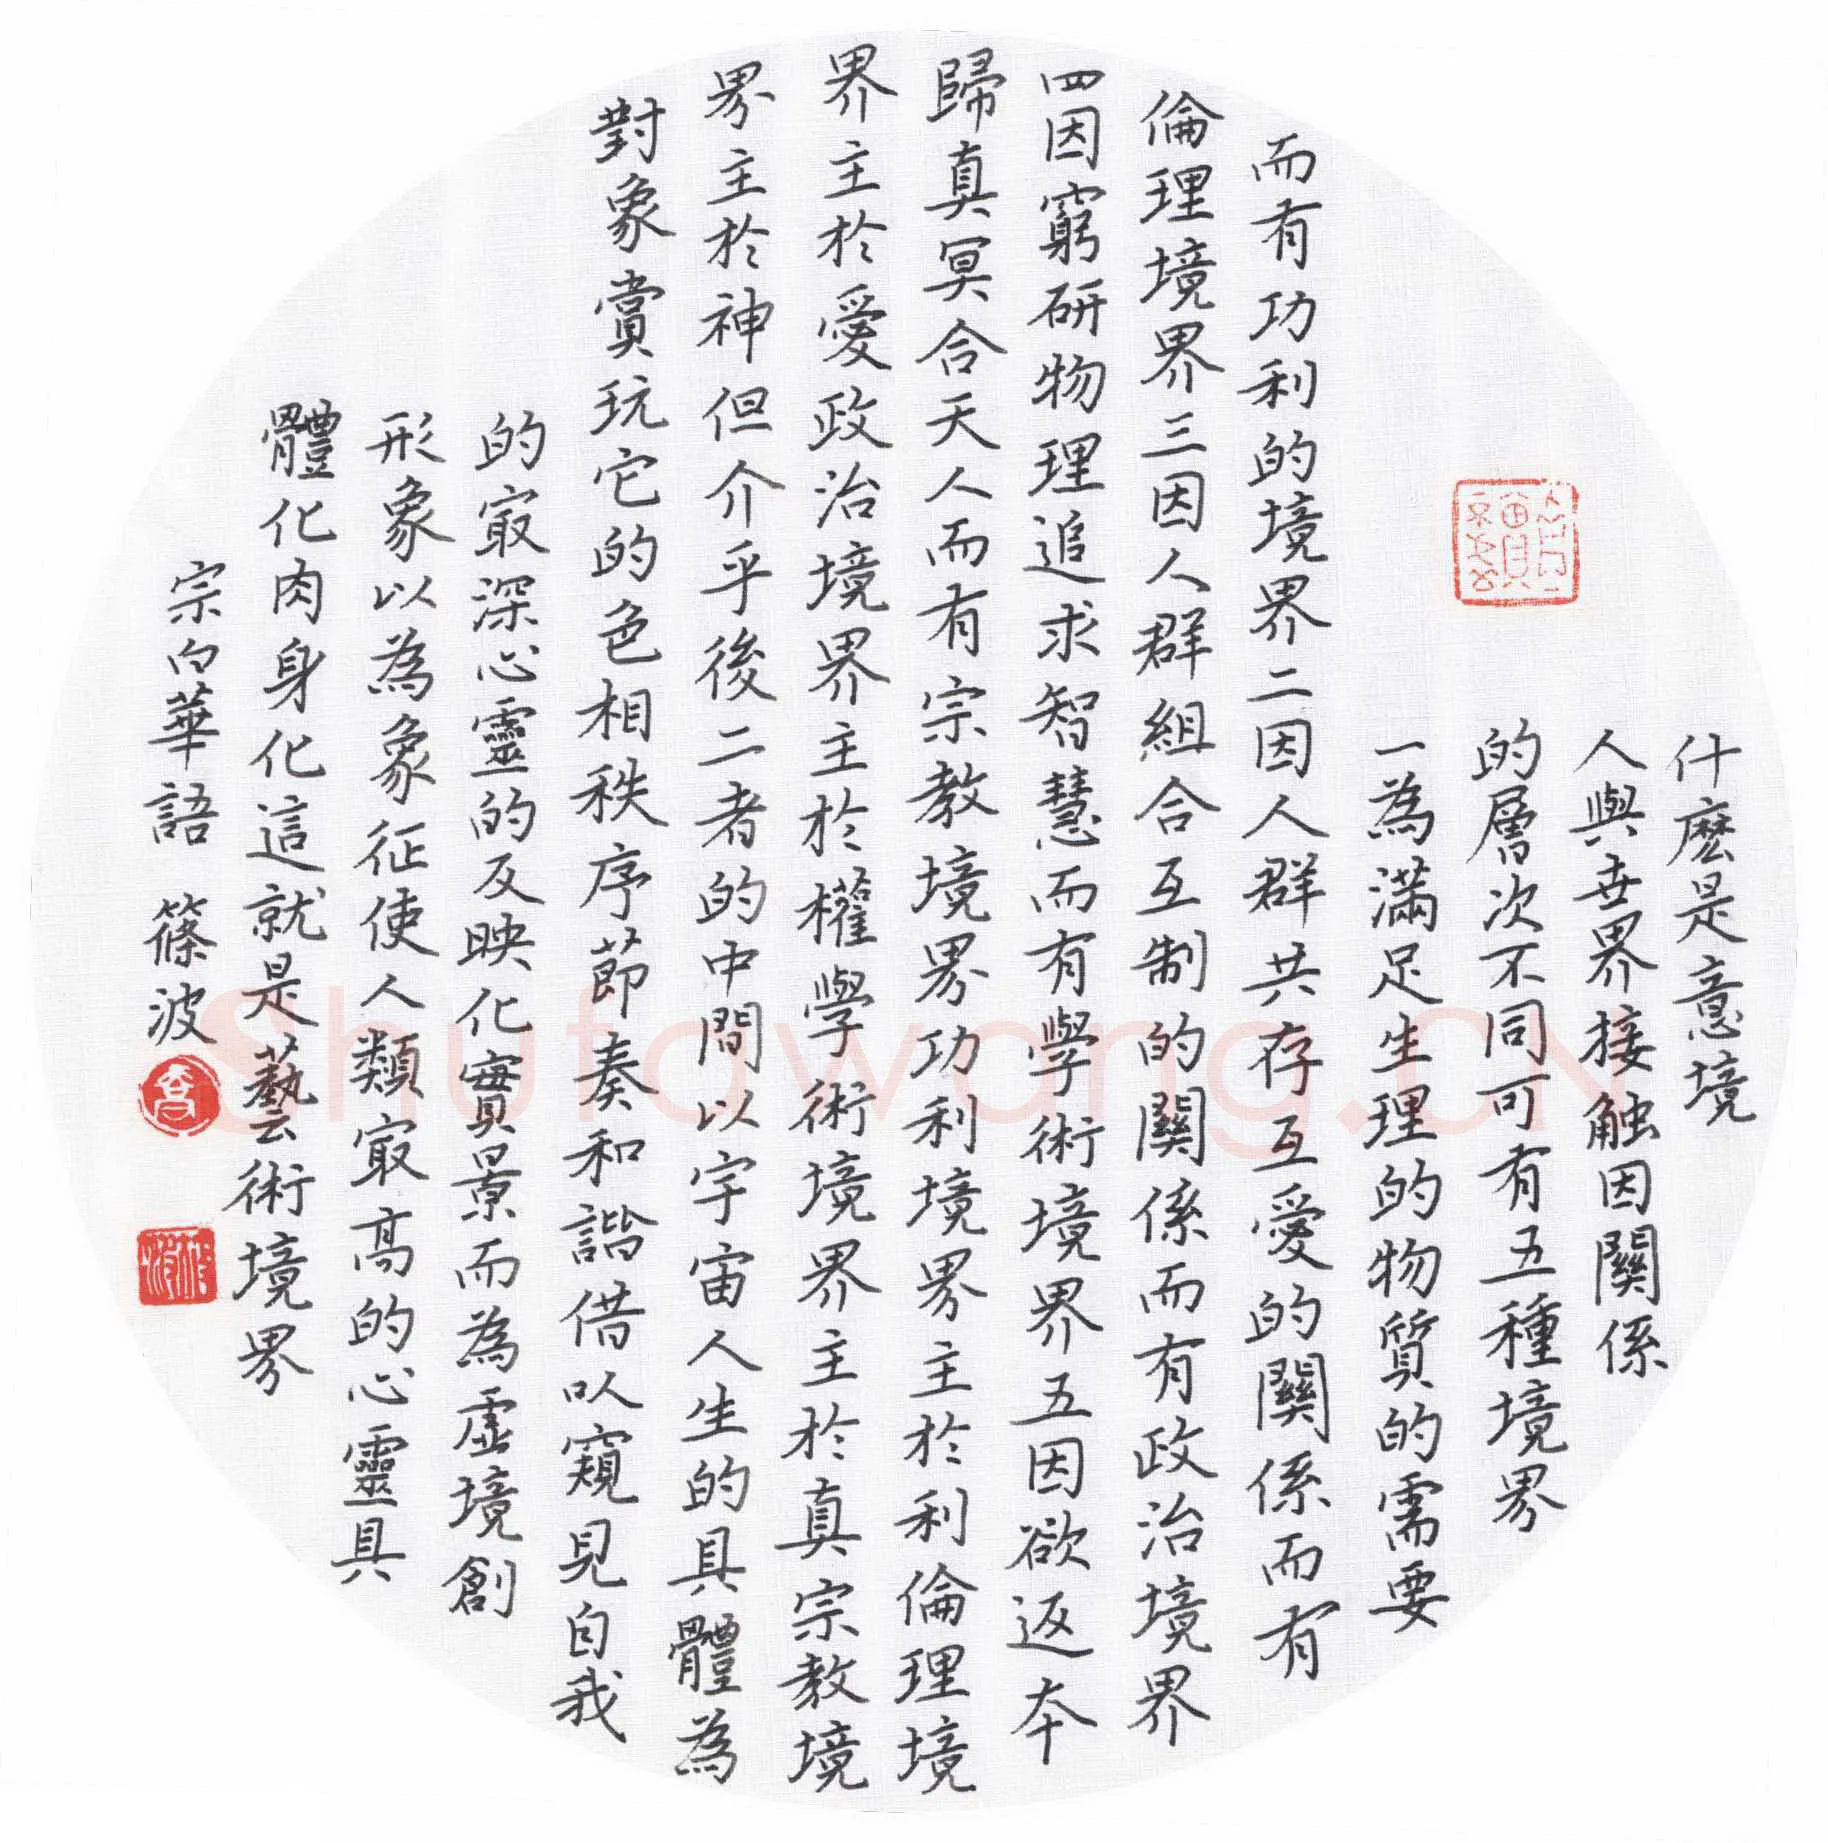 什麽是意境
人與世界接触因關係
的層次不同可有五種境界
一為滿足生理的物質的需要
而有功利的境界二因人群共存互愛的關係而有
倫理境界三因人群組合互制的關係而有政治境界
四因窮研物理追求智慧而有學術境界五因欲返本
歸真冥合天人而有宗教境界功利境界主於利倫理境
界主於愛政治境界主於權學術境界主於真宗教境
界主於神但介乎後二者的中間以宇宙人生的具體為
對象賞玩它的色相秩序節奏和諧借以窺見自我
的㝡深心靈的反映化實景而為虛境創
形象以為象征使人類㝡高的心靈具
體化肉身化這就是藝術境界
宗白華語 篠波
Shufawang.CN